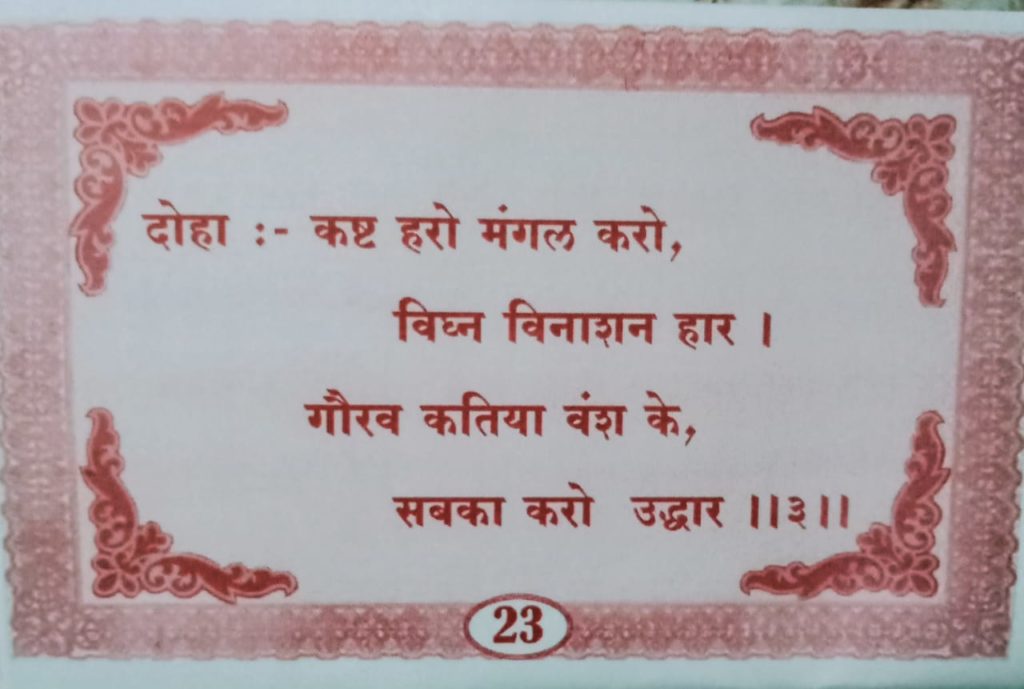 दोहा :- कष्ट हरो मंगल करो,
विघ्न विनाशन हार ।
गौरव कतिया वंश के,
सबका करो उद्धार ।।३।।
23